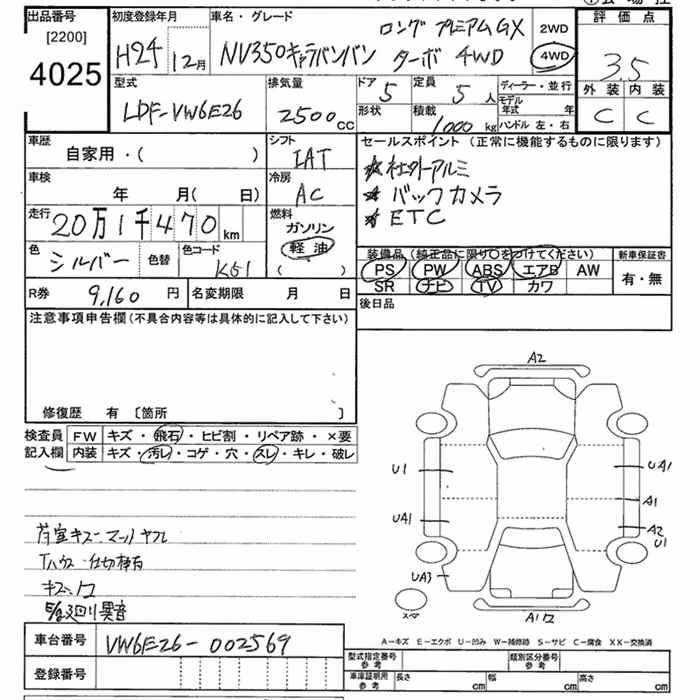 出品番号 初度登録年月 車名・グレード ロングプレミアムGX 2WD 評価点
[2200] H24 12月 NV350キャラバンバン ターボ 4WD 4WD 3.5
4025 型式 排気量 ドア 定員 ディーラー・並行 外装 内装
LDF-VW6E26 2500CC 5 5人 モデル年式 年 C C
形状 積載 1000kg ハンドル 左・右
車歴 シフト セールスポイント(正常に機能するものに限ります)
自家用・( ) IAT ★社外アルミ
車検 冷房 ★バックカメラ
年 月( 日) AC ★ETC
走行 燃料
20万1千470km ガソリン
色 色替 色コード 軽油 装備品(純正品に限り○をつけてください) 新車保証書
シルバー K51 ( ) PS PW ABS エアB AW 有・無
SR ナビ TV カワ
R券 9,160円 名変期限 月 日 後日品
注意事項申告欄(不具合内容等は具体的に記入して下さい)
修復歴 有 〔箇所 〕
検査員 FW キズ・飛石・ヒビ割・リペア跡・×要
記入欄 内装 キズ・汚レ・コゲ・穴・スレ・キレ・破レ
A2
U1 UA1
A1
UA1 A2
U1
UA3
スペア A1 U2
荷室キズー マットヤブレ
異音
A－キズ E－エクボ U－凹み W－補修跡 S－サビ C－腐食 XX－交換済
車台番号 VW6E26-002569
型式指定番号 参考 類別区分番号 参考
登録番号 車庫証明用 参考 長さ cm 幅 cm 高さ cm